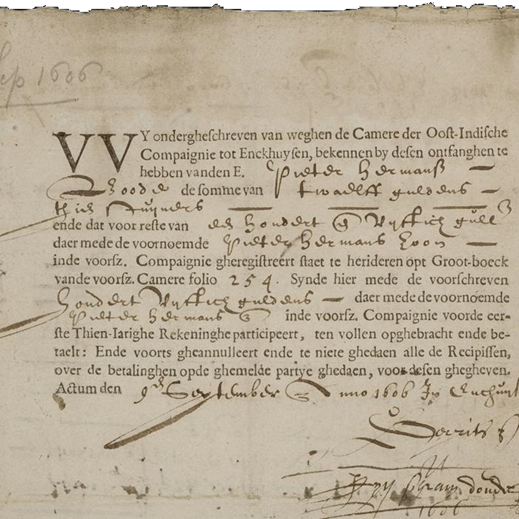 Sep 1606
VVY ondergheschreven van weghen de Camere der Oost-Indische
Compaignie tot Enckhuysen, bekennen by desen ontfanghen te
hebben vanden E. Pieter Hermansz
de somme van twaelff guldens
thien stuyvers
ende dat voor reste van een hondert vyftich
daer mede de voornoemde Pieter Hermans
inde voorsz. Compaignie gheregistreert staet te herideren opt Groot-boeck
vande voorsz. Camere folio 254. Synde hier mede de voorschreven
hondert vyftich guldens daer mede de voornoemde
Pieter Hermans inde voorsz. Compaignie voorde eer-
ste Thien-Iarighe Rekeninghe participeert, ten vollen opghebracht ende be-
taelt: Ende voorts gheannulleert ende te niete ghedaen alle de Recipissen,
over de betalinghen opde ghemelde partye ghedaen, voor desen ghegheven.
Actum den 9 September Anno 1606 In
Gerrits
1606